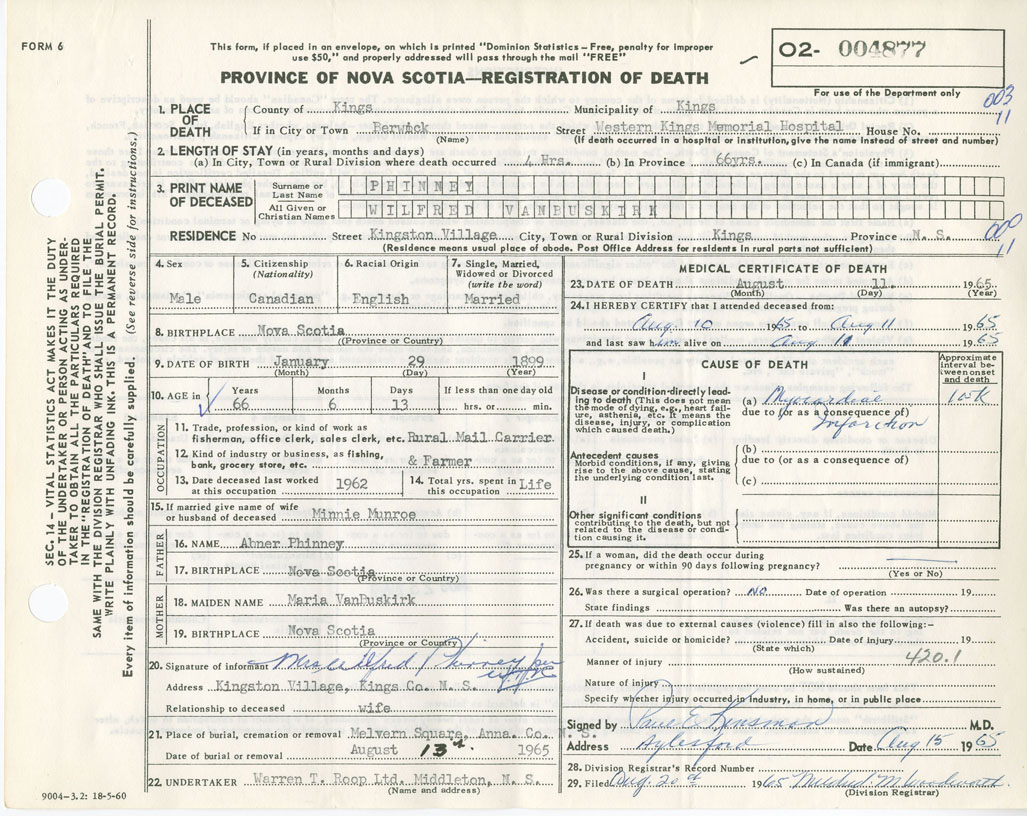 FORM 6
This form, if placed in an envelope, on which is printed "Dominion Statistics – Free, penalty for improper
use $50," and properly addressed will pass through the mail "FREE"
PROVINCE OF NOVA SCOTIA—REGISTRATION OF DEATH
02- 004877
For use of the Department only
003
11
1. PLACE OF DEATH
County of Kings Municipality of Kings
If in City or Town Berwick Street Western Kings Memorial Hospital House No.
(Name) (If death occurred in a hospital or institution, give the name instead of street and number)
2. LENGTH OF STAY (in years, months and days)
(a) In City, Town or Rural Division where death occurred 4 Hrs. (b) In Province 66yrs. (c) In Canada (if immigrant)
3. PRINT NAME OF DECEASED
Surname or Last Name PHINNEY
All Given or Christian Names WILFRED VANBUSKIRK
RESIDENCE No Street Kingston Village City, Town or Rural Division Kings Province N. S.
(Residence means usual place of abode. Post Office Address for residents in rural parts not sufficient)
000
11
4. Sex 5. Citizenship (Nationality) 6. Racial Origin 7. Single, Married, Widowed or Divorced (write the word)
Male Canadian English Married
8. BIRTHPLACE Nova Scotia
(Province or Country)
9. DATE OF BIRTH January 29 1899
(Month) (Day) (Year)
10. AGE in Years Months Days If less than one day old
66 6 13 hrs. or min.
OCCUPATION
11. Trade, profession, or kind of work as
fisherman, office clerk, sales clerk, etc. Rural Mail Carrier
12. Kind of industry or business, as fishing,
bank, grocery store, etc. & Farmer
13. Date deceased last worked at this occupation 1962 14. Total yrs. spent in this occupation Life
15. If married give name of wife
or husband of deceased Minnie Munroe
FATHER
16. NAME Abner Phinney
17. BIRTHPLACE Nova Scotia
(Province or Country)
MOTHER
18. MAIDEN NAME Maria VanBuskirk
19. BIRTHPLACE Nova Scotia
(Province or Country)
20. Signature of informant Mrs. Wilfred Phinney per
Address Kingston Village, Kings Co. N. S.
Relationship to deceased wife
21. Place of burial, cremation or removal Melvern Square, Anna. Co. N. S.
Date of burial or removal August 13th 1965
22. UNDERTAKER Warren T. Roop Ltd. Middleton, N. S.
(Name and address)
MEDICAL CERTIFICATE OF DEATH
23. DATE OF DEATH August 11. 1965
(Month) (Day) (Year)
24. I HEREBY CERTIFY that I attended deceased from:
Aug. 10 1965 to Aug 11 1965
and last saw him alive on Aug. 11 1965
CAUSE OF DEATH
Approximate interval between onset and death
I
Disease or condition directly leading to death (This does not mean
the mode of dying, e.g., heart failure, asthenia, etc. It means the
disease, injury, or complication
which caused death.)
(a) Myocardial
due to (or as a consequence of)
Infarction
Antecedent causes
Morbid conditions, if any, giving
rise to the above cause, stating
the underlying condition last.
(b)
due to (or as a consequence of)
(c)
II
Other significant conditions
contributing to the death, but not
related to the disease or condition causing it.
25. If a woman, did the death occur during
pregnancy or within 90 days following pregnancy?
(Yes or No)
26. Was there a surgical operation? NO Date of operation 19
State findings Was there an autopsy?
27. If death was due to external causes (violence) fill in also the following:–
Accident, suicide or homicide? Date of injury 19
(State which)
Manner of injury 420.1
(How sustained)
Nature of injury
Specify whether injury occurred in industry, in home, or in public place
Signed by Paul E. Kinsman M.D.
Address Aylesford Date Aug 15 1965
28. Division Registrar's Record Number
29. Filed Aug. 20th 1965 Mildred M Woodworth
(Division Registrar)
SEC. 14 – VITAL STATISTICS ACT MAKES IT THE DUTY
OF THE UNDERTAKER OR PERSON ACTING AS UNDER-
TAKER TO OBTAIN ALL THE PARTICULARS REQUIRED
IN THE "REGISTRATION OF DEATH" AND TO FILE THE
SAME WITH THE DIVISION REGISTRAR WHO SHALL ISSUE THE BURIAL PERMIT.
WRITE PLAINLY WITH UNFADING INK. THIS IS A PERMANENT RECORD.
Every item of information should be carefully supplied. (See reverse side for instructions.)
9004–3.2: 18-5-60